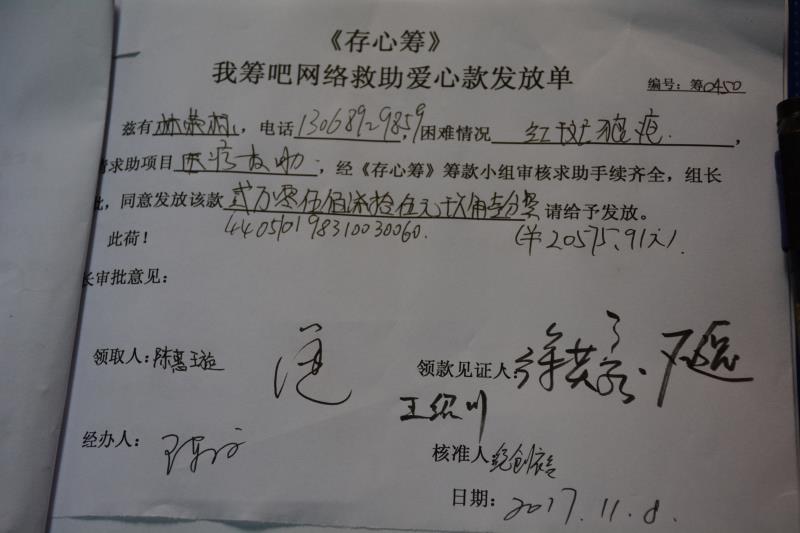 《存心筹》
我筹吧网络救助爱心款发放单
编号：筹0450
兹有，电话13068929859，困难情况红斑狼疮，
请求助项目医疗救助，经《存心筹》筹款小组审核求助手续齐全，组长
批，同意发放该款贰万零伍佰柒拾伍元玖角壹分 请给予发放。
此荷！ 440501198310030060. （¥20575.91元）.
长审批意见：
领取人：陈惠璇
领款见证人：
王绍川
经办人：
核准人
日期：2017.11.8.